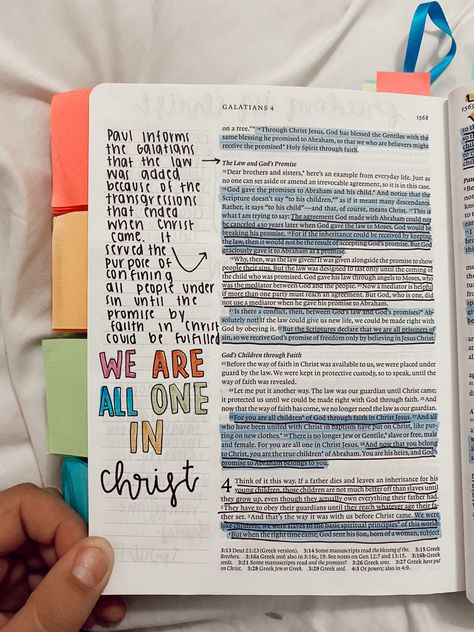 GALATIANS 4
1568
Paul informs
the Galatians
that the law
was added
because of the
transgressions
that ended
when Christ
came. It
served the
purpose of
confining
all people under
sin until the
promise by
faith in Christ
could be fulfilled
WE ARE
ALL ONE
IN
Christ
on a tree.”* 14Through Christ Jesus, God has blessed the Gentiles with the
same blessing he promised to Abraham, so that we who are believers might
receive the promised* Holy Spirit through faith.
The Law and God's Promise
15Dear brothers and sisters,* here's an example from everyday life. Just as
no one can set aside or amend an irrevocable agreement, so it is in this case.
16God gave the promises to Abraham and his child.* And notice that the
Scripture doesn't say “to his children,*” as if it meant many descendants.
Rather, it says “to his child”—and that, of course, means Christ. 17This is
what I am trying to say: The agreement God made with Abraham could not
be canceled 430 years later when God gave the law to Moses. God would be
breaking his promise. 18For if the inheritance could be received by keeping
the law, then it would not be the result of accepting God's promise. But God
graciously gave it to Abraham as a promise.
19Why, then, was the law given? It was given alongside the promise to show
people their sins. But the law was designed to last only until the coming of
the child who was promised. God gave his law through angels to Moses, who
was the mediator between God and the people. 20Now a mediator is helpful
if more than one party must reach an agreement. But God, who is one, did
not use a mediator when he gave his promise to Abraham.
21Is there a conflict, then, between God's law and God's promises?* Ab-
solutely not! If the law could give us new life, we could be made right with
God by obeying it. 22But the Scriptures declare that we are all prisoners of
sin, so we receive God's promise of freedom only by believing in Jesus Christ.
God's Children through Faith
23Before the way of faith in Christ was available to us, we were placed under
guard by the law. We were kept in protective custody, so to speak, until the
way of faith was revealed.
24Let me put it another way. The law was our guardian until Christ came;
it protected us until we could be made right with God through faith. 25And
now that the way of faith has come, we no longer need the law as our guardian.
26For you are all children* of God through faith in Christ Jesus. 27And all
who have been united with Christ in baptism have put on Christ, like put-
ting on new clothes.* 28There is no longer Jew or Gentile,* slave or free, male
and female. For you are all one in Christ Jesus. 29And now that you belong
to Christ, you are the true children* of Abraham. You are his heirs, and God's
promise to Abraham belongs to you.
4 Think of it this way. If a father dies and leaves an inheritance for his
young children, those children are not much better off than slaves until
they grow up, even though they actually own everything their father had.
2They have to obey their guardians until they reach whatever age their fa-
ther set. 3And that's the way it was with us before Christ came. We were
like children; we were slaves to the basic spiritual principles* of this world.
4But when the right time came, God sent his Son, born of a woman, subject
3:13 Deut 21:23 (Greek version). 3:14 Some manuscripts read the blessing of the. 3:15 Greek
Brothers. 3:16a Greek seed; also in 3:16c, 19. See notes on Gen 12:7 and 13:15. 3:16b Greek
seeds. 3:21 Some manuscripts read and the promises? 3:26 Greek sons. 3:27 Greek have put
on Christ. 3:28 Greek Jew or Greek. 3:29 Greek seed. 4:3 Or powers; also in 4:9.